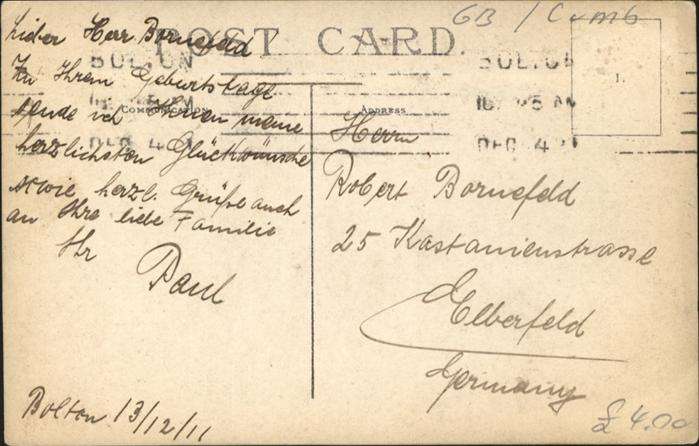 GB / Cumb
POST CARD.
BOLTON
BOLTON
COMMUNICATION
ADDRESS
DEC 4 11
DEC 4 11
Lieber Herr Bornefeld
Zu Ihrem Geburtstage
sende ich Ihnen meine
herzlichsten Glückwünsche
sowie herzl. Grüße auch
an Ihre liebe Familie
Ihr
Paul
Bolton 13/12/11
Herrn
Robert Bornefeld
25 Kastanienstrasse
Elberfeld
Germany
£ 4.00